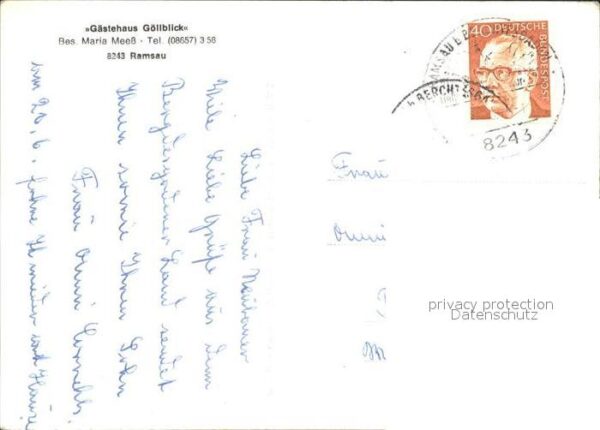 »Gästehaus Göllblick«
Bes. Maria Meeß - Tel. (08657) 3 58
8243 Ramsau
Liebe Frau
Viele liebe Grüße aus dem
Berchtesgadener Land sendet
Ihnen sowie Ihrem Sohn
Frau Omni
am 20. 6. fahre ich wieder nach Hause
Frau
Omni
40
DEUTSCHE
BUNDESPOST
RAMSAU B B
BERCHTESGA
8243
privacy protection
Datenschutz